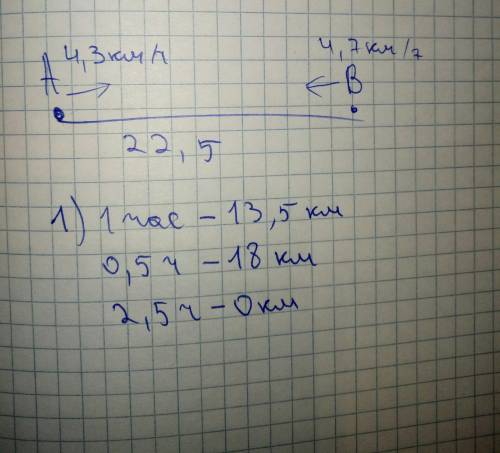 4,3км/ч 4,7км/ч
A B
22,5
1) 1 час – 13,5 км
0,5 ч – 18 км
2,5 ч – 0 км